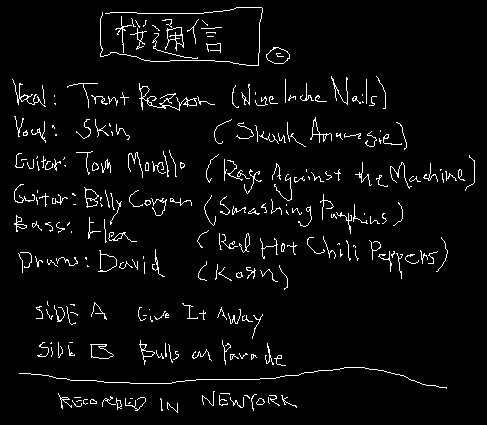 接通信
Vocal: Trent Reznor (Nine Inche Nails)
Vocal: Skin (Skunk Anansie)
Guitar: Tom Morello (Rage Against the Machine)
Guitar: Billy Corgan (Smashing Pumpkins)
Bass: Flea (Red Hot Chili Peppers)
Drums: David (KoЯn)
SIDE A Give It Away
SIDE B Bulls on Parade
RECORDED IN NEWYORK